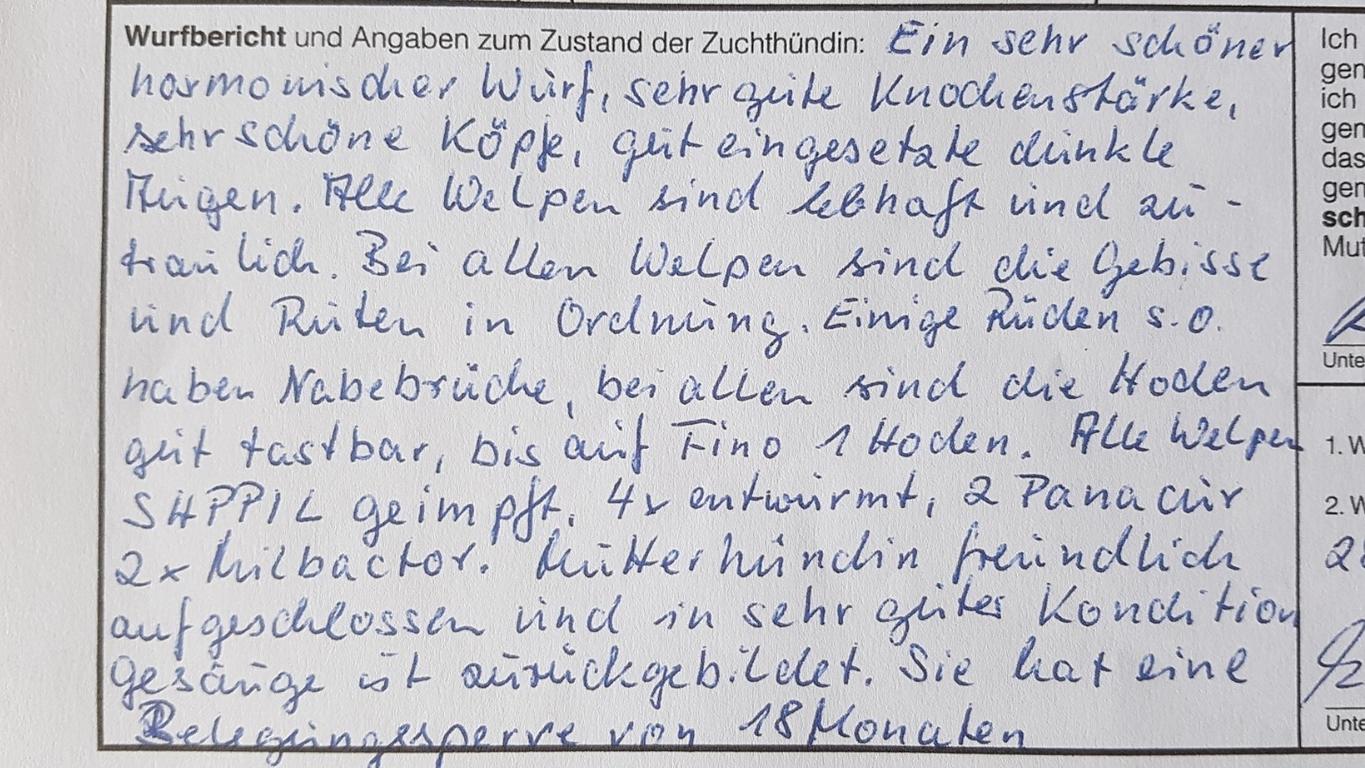 Wurfbericht und Angaben zum Zustand der Zuchthündin: Ein sehr schöner
harmonischer Wurf, sehr gute Knochenstärke,
sehr schöne Köpfe, gut eingesetzte dunkle
Augen. Alle Welpen sind lebhaft und zu-
traulich. Bei allen Welpen sind die Gebisse
und Ruten in Ordnung. Einige Rüden s.o.
haben Nabebrüche, bei allen sind die Hoden
gut tastbar, bis auf Fino 1 Hoden. Alle Welpen
SHPPIL geimpft. 4x entwurmt, 2 Panacur
2x Milbactor. Mutterhündin freundlich
aufgeschlossen und in sehr guter Kondition
Gesäuge ist zurückgebildet. Sie hat eine
Belegungssperre von 18 Monaten
Ich
gen
ich
gen
das
gen
sch
Mut
Unte
1. W
2. W
Unte